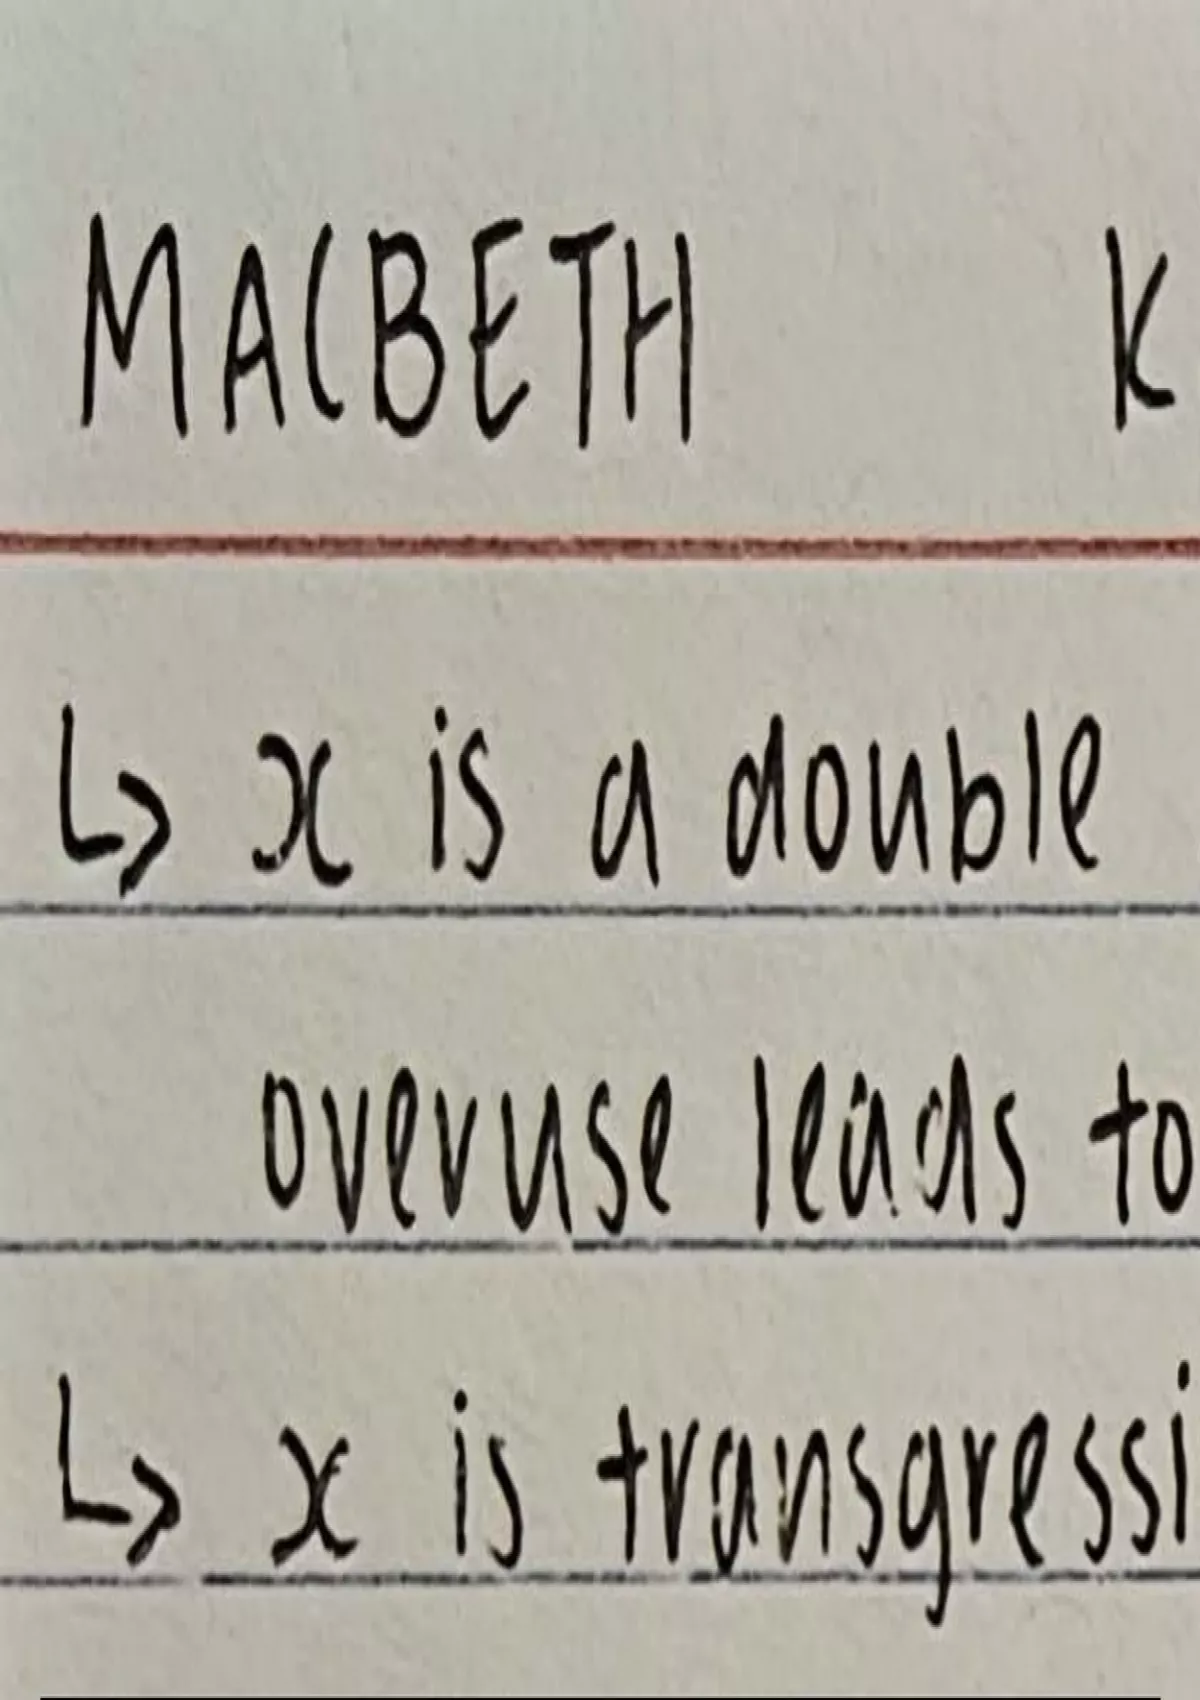 MACBETH K
↳ x is a double
overuse leads to
↳ x is transgressi